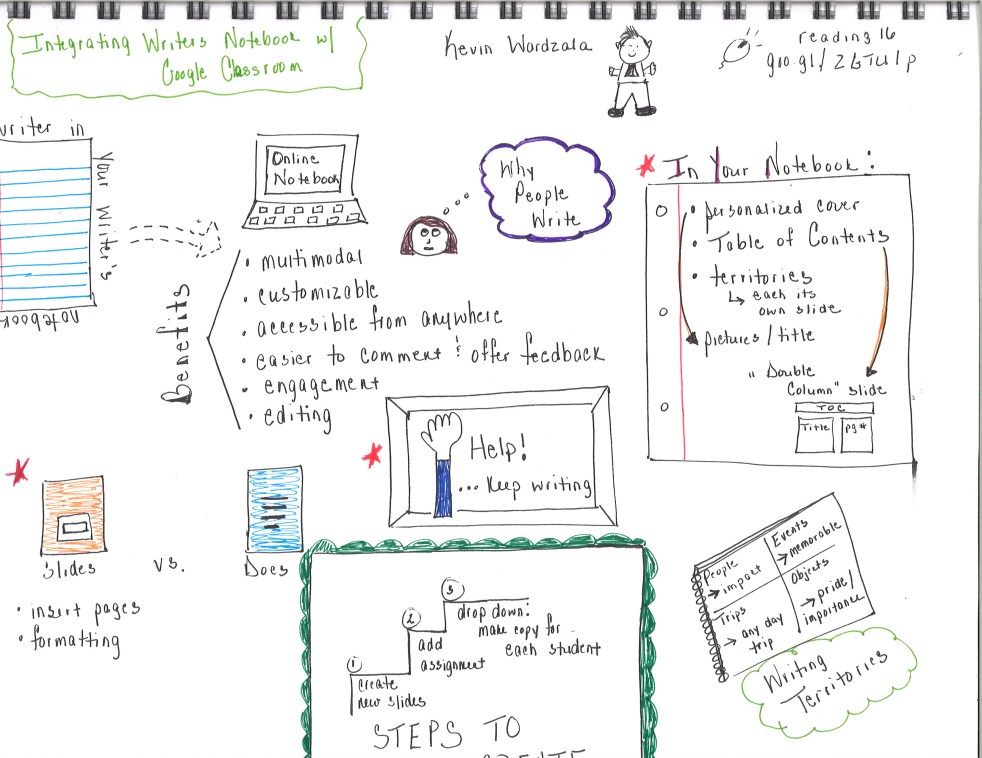 Integrating Writers Notebook w/
Google Classroom
Kevin Wordzala
reading 16
writer in
Your Writer's
notebook
Online
Notebook
Why
People
Write
Benefits
• multimodal
• customizable
• accessible from anywhere
• easier to comment & offer feedback
• engagement
• editing
In Your Notebook:
• personalized cover
• Table of Contents
• territories
↳ each its
own slide
pictures/title
"Double
Column" slide
TOC
Title
pg #
Help!
... Keep writing
Slides
vs.
Docs
• insert pages
• formatting
① create
new slides
② add
assignment
③ drop down:
make copy for
each student
STEPS TO
People
→ impact
Events
→ memorable
Trips
→ any day
trip
Objects
→ pride/
importance
Writing
Territories